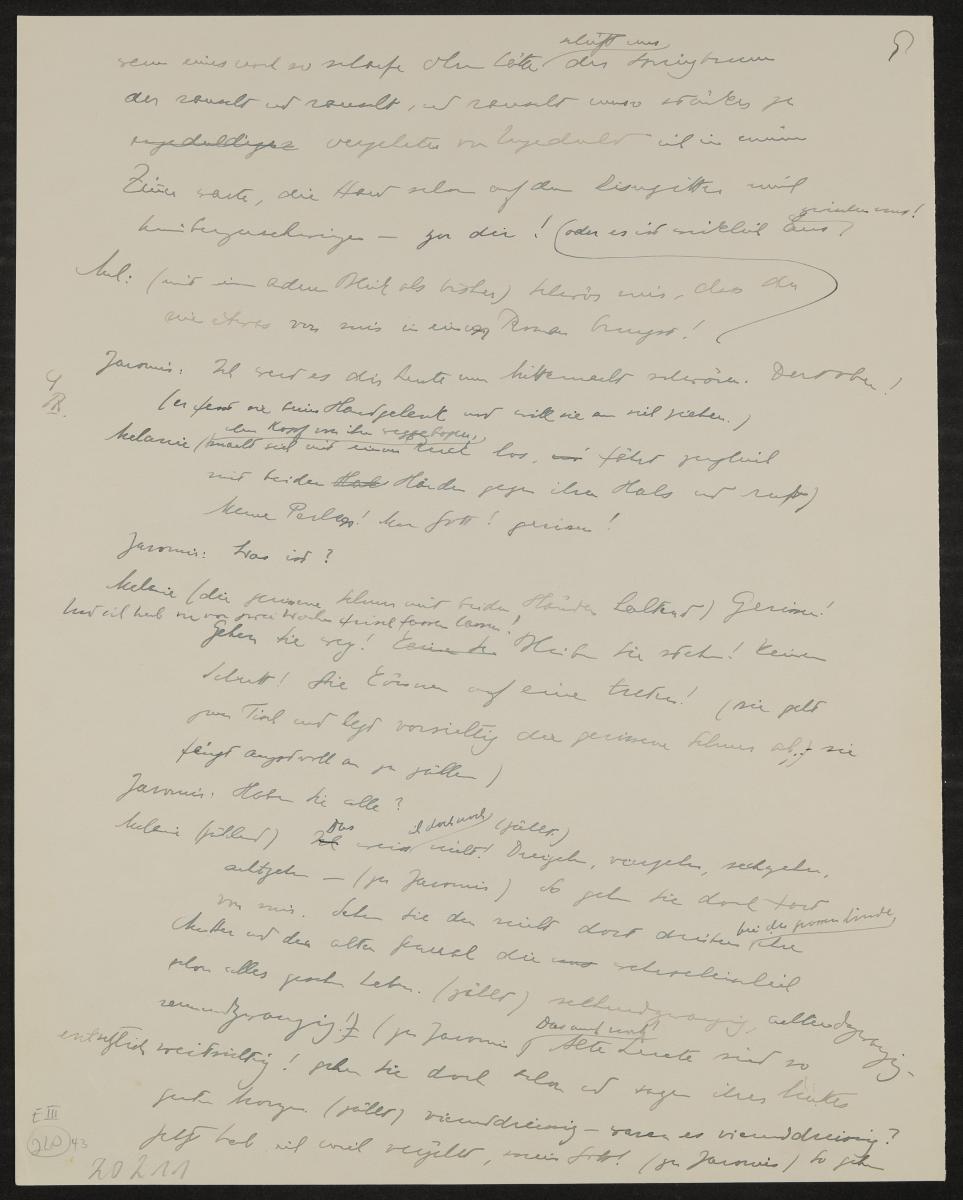 9
wenn eines und so scharfe ohne
schläft uns
der Springbrunnen
der rauscht und rauscht, und rauscht immer stärker je
ungeduldiger vergehter vor Ungeduld ich in meinem
Zimmer warte, die Hand schon auf dem Eisengitter mich
hinüberzuschwingen — zu dir! (oder es ist wirklich aus?
Mel: (mit einem andern Blick als bisher) Schwör mir, dass du
nie etwas von mir in einem Roman bringst!
Jaromir: Ich werd es dir heute um Mitternacht schwören. Dort oben!
(er fasst sie beim Handgelenk und will sie an sich ziehen.)
den Kopf von ihm weggebogen,
Melanie (macht sich mit einem Ruck los, fährt zugleich
mit beiden Händen gegen ihren Hals und ruft)
Meine Perlen! Mein Gott! gerissen!
Jaromir: Was ist?
Melanie (die gerissene Schnur mit beiden Händen haltend) Gerissen!
Und ich hab sie vor zwei Wochen frisch fassen lassen!
Gehen Sie weg! Bleiben Sie stehn! Keinen
Schritt! Sie können auf eine treten! (sie geht
zum Tisch und legt vorsichtig die gerissene Schnur ab, sie
fängt angstvoll an zu zählen)
Jaromir: Haben Sie alle?
Das
ich doch noch
(zählt)
Melanie (zählend) Ich weiss nicht! Dreizehn, vierzehn, sechzehn,
achtzehn — (zu Jaromir) So gehn Sie doch fort
von mir. Sehen Sie denn nicht dort drüben
bei der grossen Linde,
Ihre
Mutter und den alten General die wahrscheinlich
schon alles gesehn haben. (zählt) sechsundzwanzig, achtundzwanzig,
neunundzwanzig! (zu Jaromir)
Das auch noch!
Alte Leute sind so
entsetzlich weitsichtig! gehen Sie doch schon und sagen ihrer Mutter
guten Morgen. (zählt) vierunddreissig — waren es vierunddreissig?
Jetzt hab ich mich verzählt, mein Gott! (zu Jaromir) So gehn
E III
210
43
20211